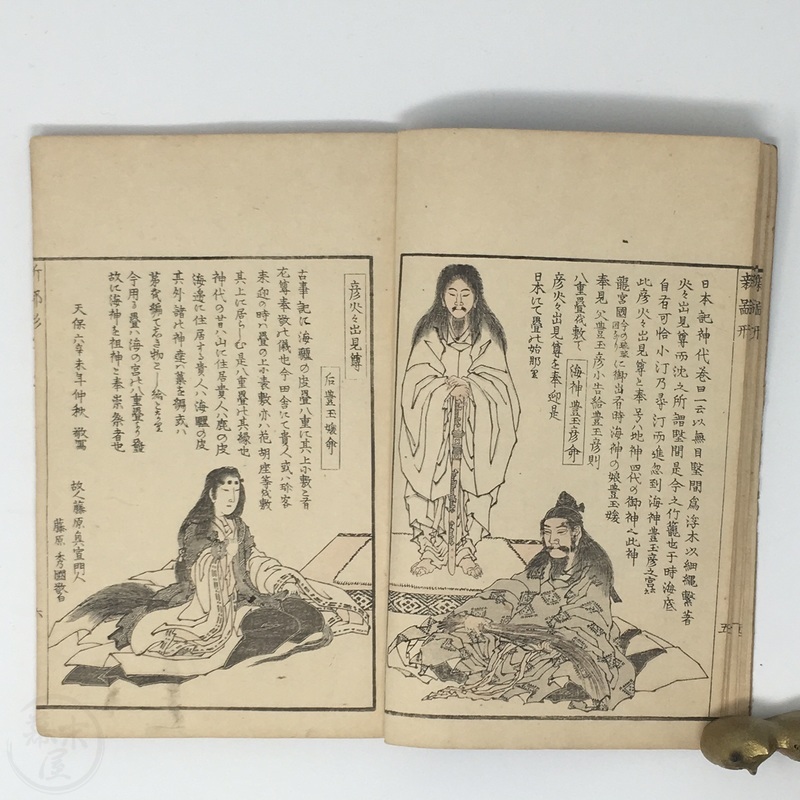 日本記神代巻曰一云以無目堅間為浮木以細縄繋著
火々出見尊而沈之所謂堅間是今之竹籠也于時海底
自有可怜小汀乃尋汀而進忽到海神豊玉彦之宮
此彦火々出見尊と奉号ハ地神四代の御神也此神
龍宮國に御出有時海神の娘豊玉媛
奉見父豊玉彦小告給豊玉彦則
八重畳を敷て
海神豊玉彦命
彦火々出見尊を奉迎是
日本にて畳の始耶
彦火々出見尊
后豊玉媛命
古事記に海驢の皮畳八重に其上小敷と有
尤尊奉敬の儀也今田舎にて貴人或ハ珎客
来迎の時ハ畳の上小表敷亦ハ花胡座等を敷
其上に居らしむ是八重畳の其縁也
神代の昔ハ山に住居貴人ハ鹿の皮
海邊に住居する貴人ハ海驢の皮
其外諸の神産ハ藁を編或ハ
今用る畳ハ海の宮の八重畳
故に海神を祖神と奉崇祭者也
天保六辛未年仲秋 敬寫
故人藤原真宣門人
藤原秀國敬白
六